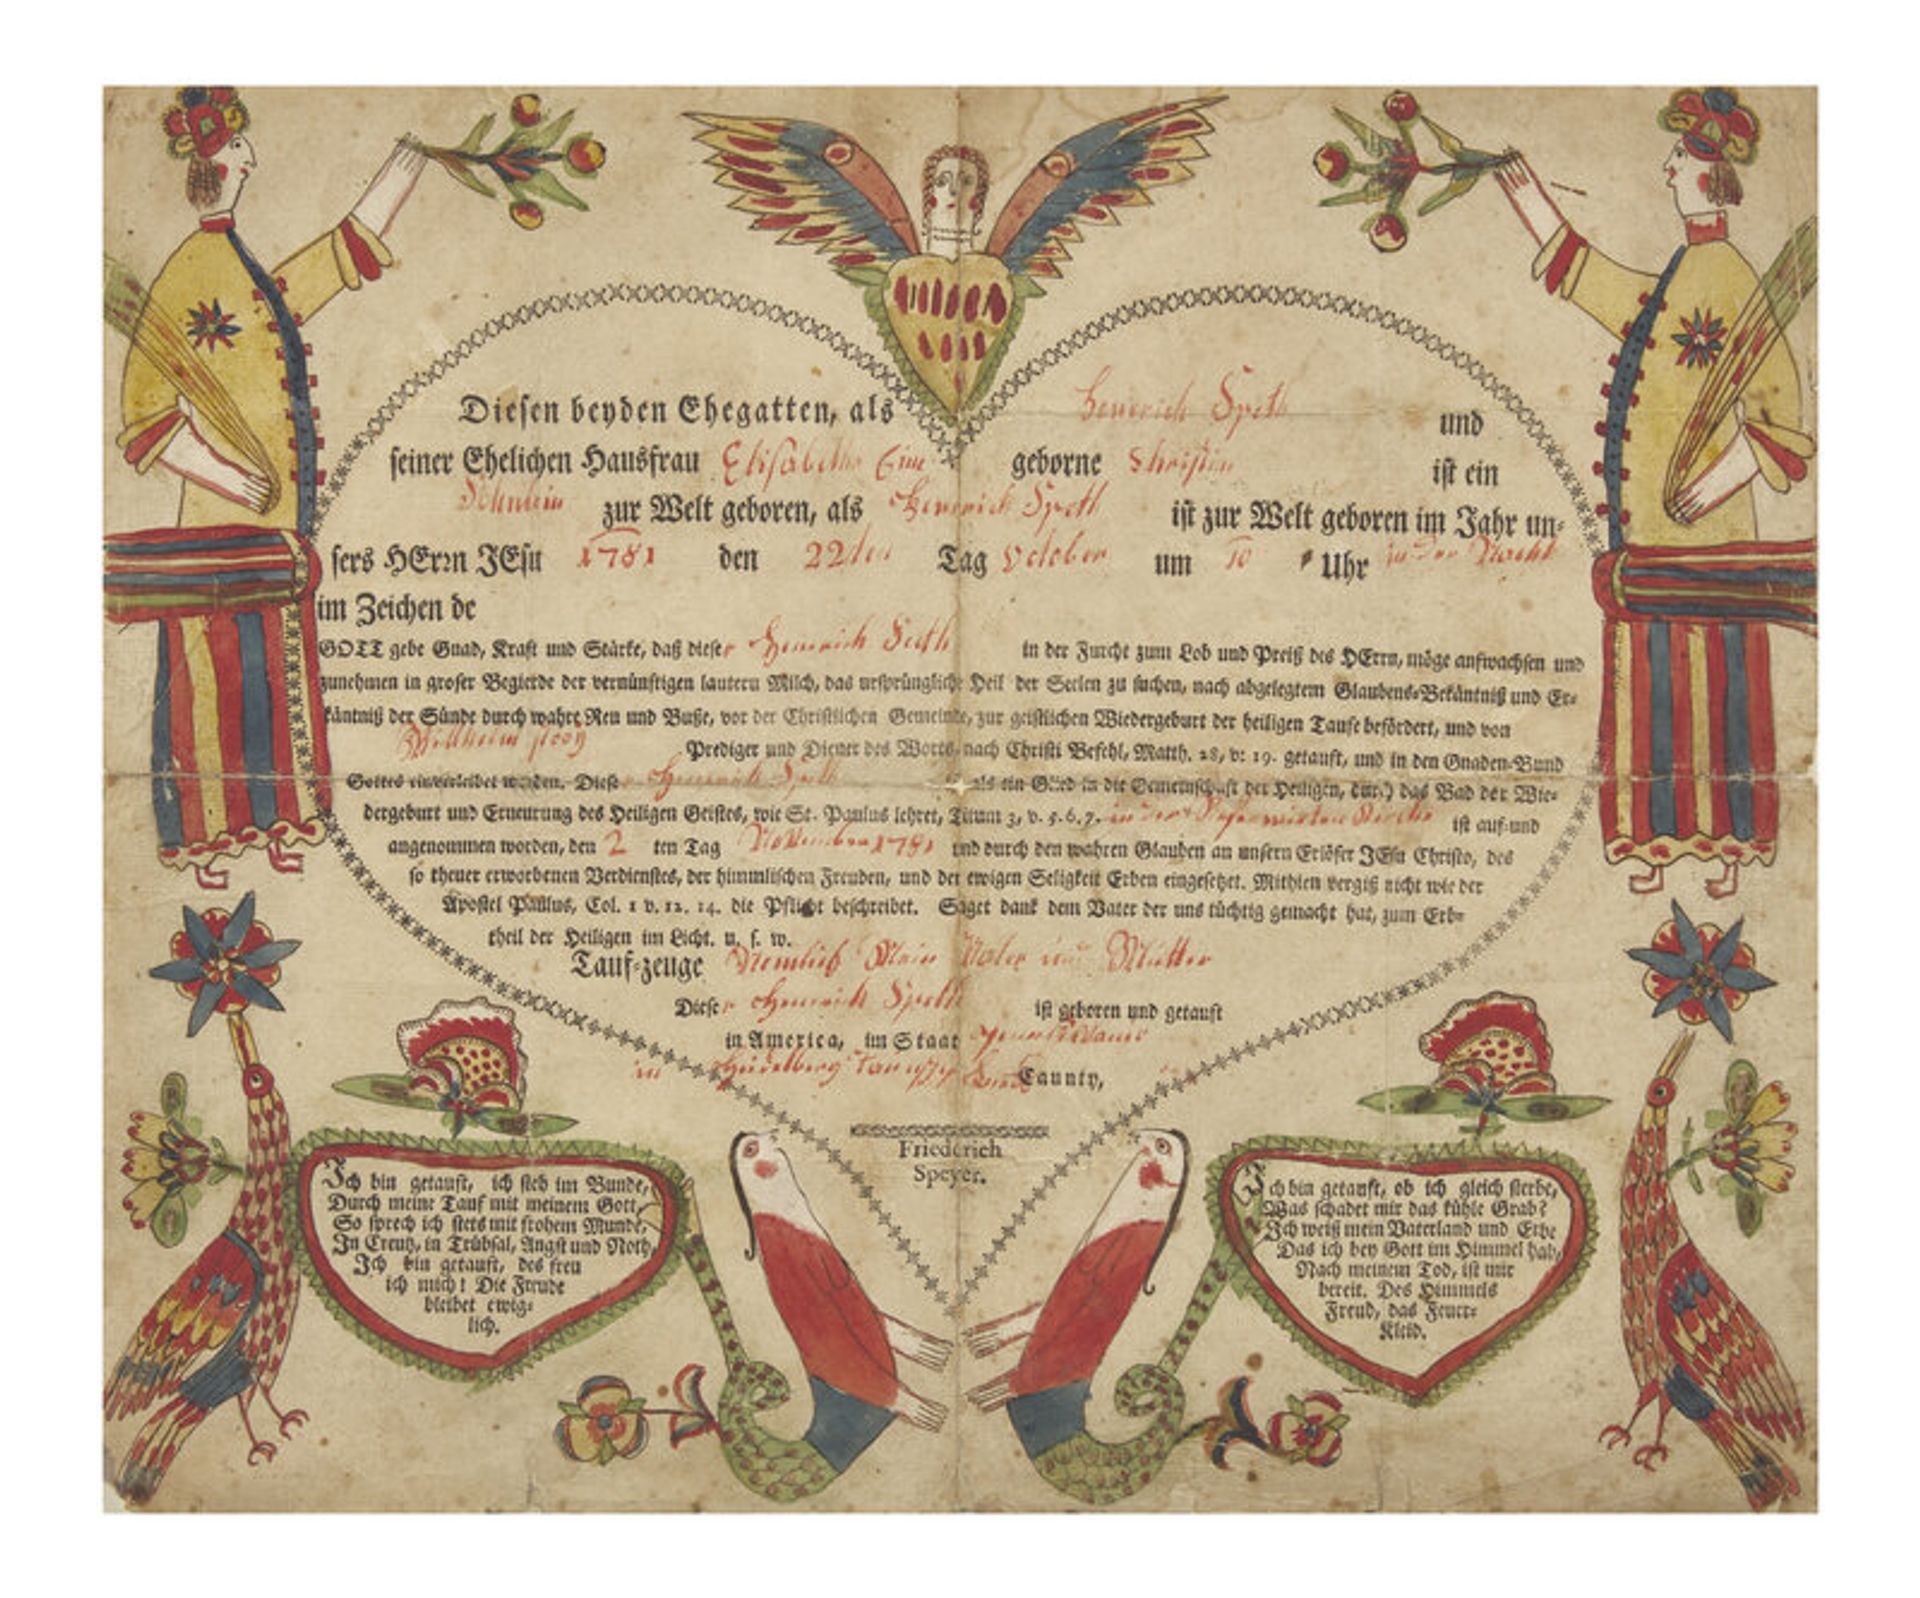 Diesen beyden Ehegatten, als Henerich Speth und
seiner Ehelichen Hausfrau Elisabetha Eine geborne Christin ist ein
Söhnlein zur Welt geboren, als Henerich Speth ist zur Welt geboren im Jahr un-
sers HErrn JEsu 1781 den 22ten Tag October um 10 Uhr in der Nacht
im Zeichen de
GOTT gebe Gnad, Kraft und Stärke, daß dieser Henerich Speth in der Furcht zum Lob und Preiß des HErrn, möge aufwachsen und
zunehmen in groser Begierde der vernünftigen lautern Milch, das ursprüngliche Heil der Seelen zu suchen, nach abgelegtem Glaubens-Bekäntniß und Er-
käntniß der Sünde durch wahre Reu und Buße, vor der Christlichen Gemeinde, zur geistlichen Wiedergeburt der heiligen Taufe befördert, und von
Willhelm Prediger und Diener des Worts, nach Christi Befehl, Matth. 28, v: 19. getauft, und in den Gnaden-Bund
Gottes einverleibet worden. Dieser Henerich Speth ist als ein Glied in die Gemeinschaft der Heiligen, durch das Bad der Wie-
dergeburt und Erneurung des Heiligen Geistes, wie St. Paulus lehret, Titum 3, v. 5. 6. 7. in der Reformirten Kirche ist auf-und
angenommen worden, den 2 ten Tag November 1781 und durch den wahren Glauben an unsern Erlöser JEsu Christo, des
so theuer erworbenen Verdienstes, der himmlischen Freuden, und der ewigen Seligkeit Erben eingesetzet. Mithien vergiß nicht wie der
Apostel Paulus, Col. 1 v. 12. 14. die Pflicht beschreibet. Saget dank dem Vater der uns tüchtig gemacht hat, zum Erb-
theil der Heiligen im Licht. u. s. w.
Tauf-zeuge Nemlich Mein Vater und Mutter
Dieser Henerich Speth ist geboren und getauft
in America, im Staat
in Heidelberg Caunty,
Friederich
Speyer.
Ich bin getauft, ich steh im Bunde,
Durch meine Tauf mit meinem Gott,
So sprech ich stets mit frohem Munde,
In Creutz, in Trübsal, Angst und Noth,
Ich bin getauft, des freu
ich mich! Die Freude
bleibet ewig-
lich.
Ich bin getauft, ob ich gleich sterbe,
Was schadet mir das kühle Grab?
Ich weiß mein Vaterland und Erbe
Das ich bey Gott im Himmel hab,
Nach meinem Tod, ist mir
bereit. Des Himmels
Freud, das Feuer-
Kleid.